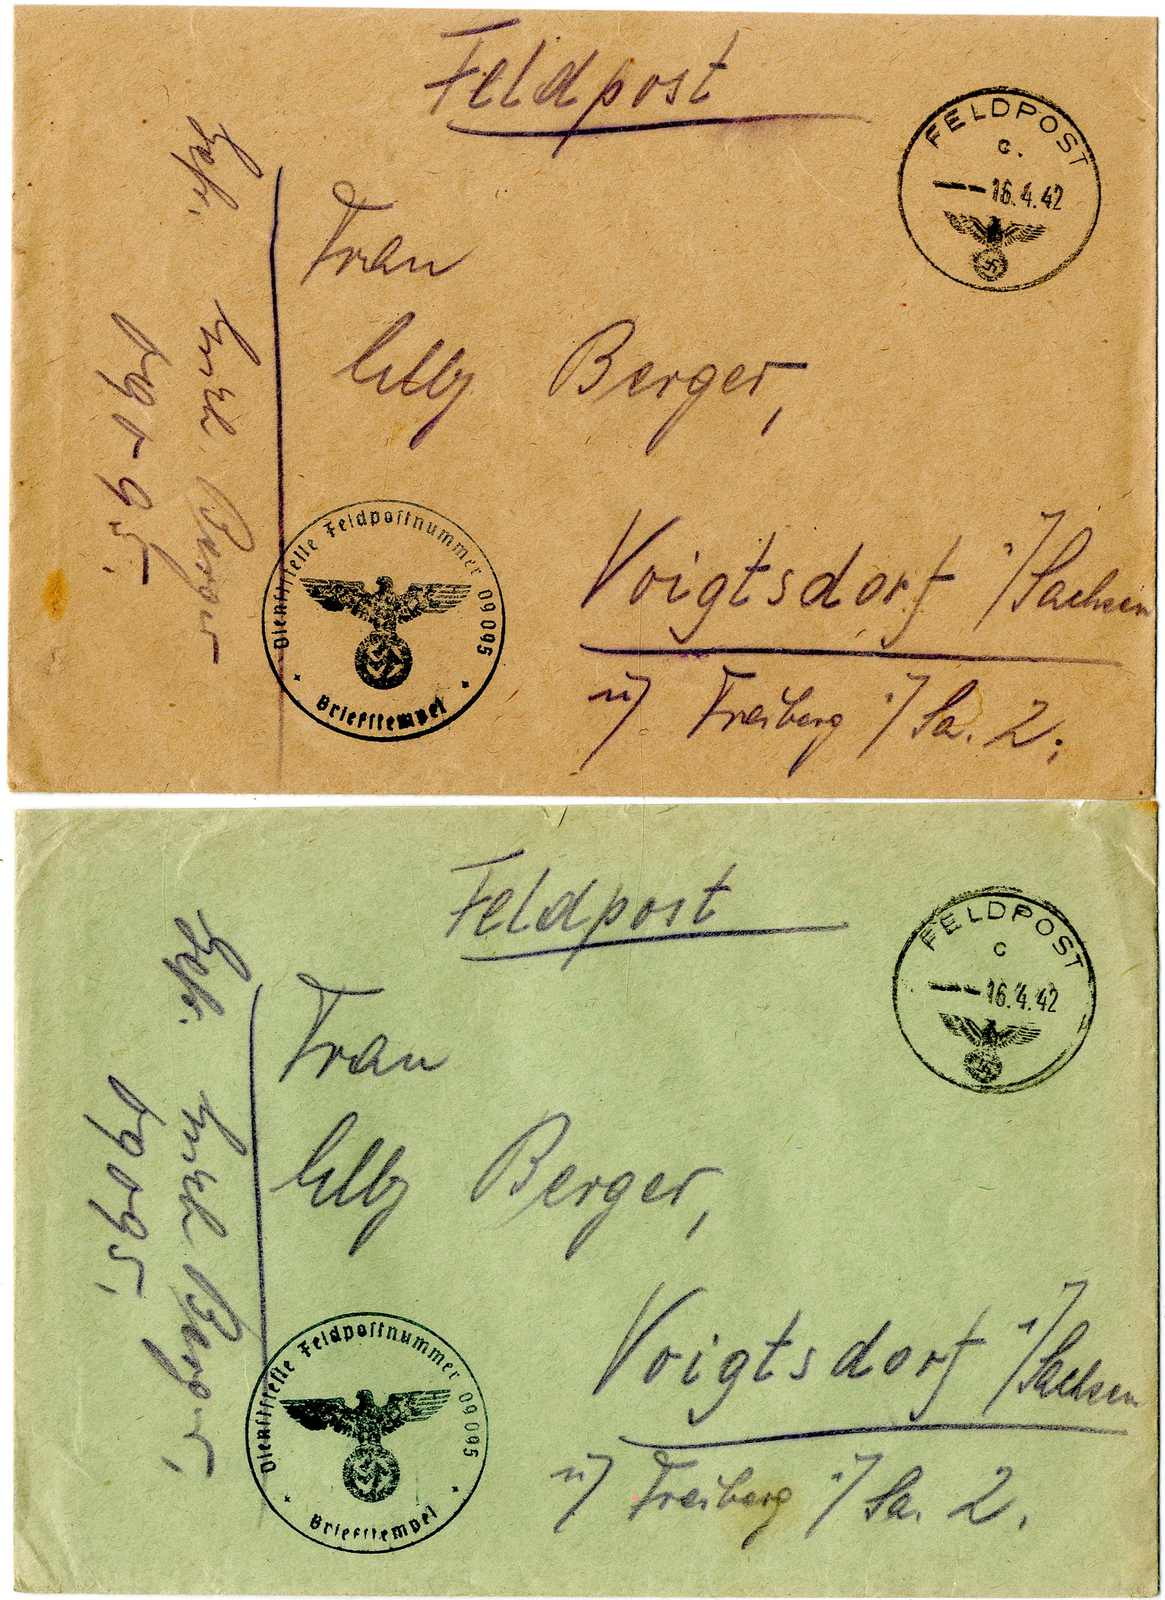 Feldpost
FELDPOST
c.
16.4.42
Frau
Elly Berger,
Voigtsdorf i/Sachsen
ü/ Freiberg i/Sa. 2.
Dienststelle Feldpostnummer 09095
Briefstempel
Gefr.
Berger
09095.
Feldpost
FELDPOST
c
16.4.42
Frau
Elly Berger,
Voigtsdorf i/Sachsen
ü/ Freiberg i/Sa. 2.
Dienststelle Feldpostnummer 09095
Briefstempel
Gefr.
Berger,
09095,